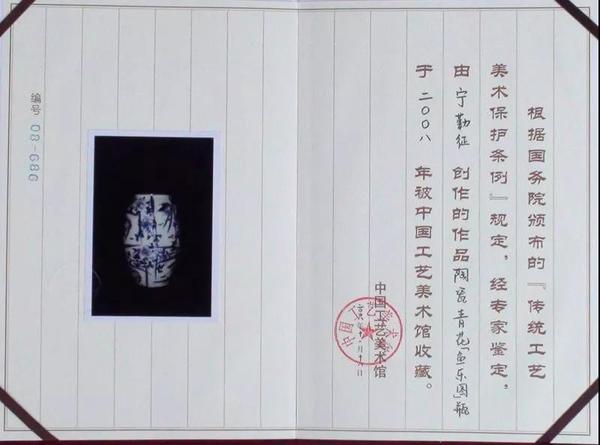 根据国务院颁布的『传统工艺
美术保护条例』规定，经专家鉴定，
由宁勤征创作的作品陶瓷青花「鱼乐图」瓶
于二〇〇八年被中国工艺美术馆收藏。
中国工艺美术馆
编号 08-686